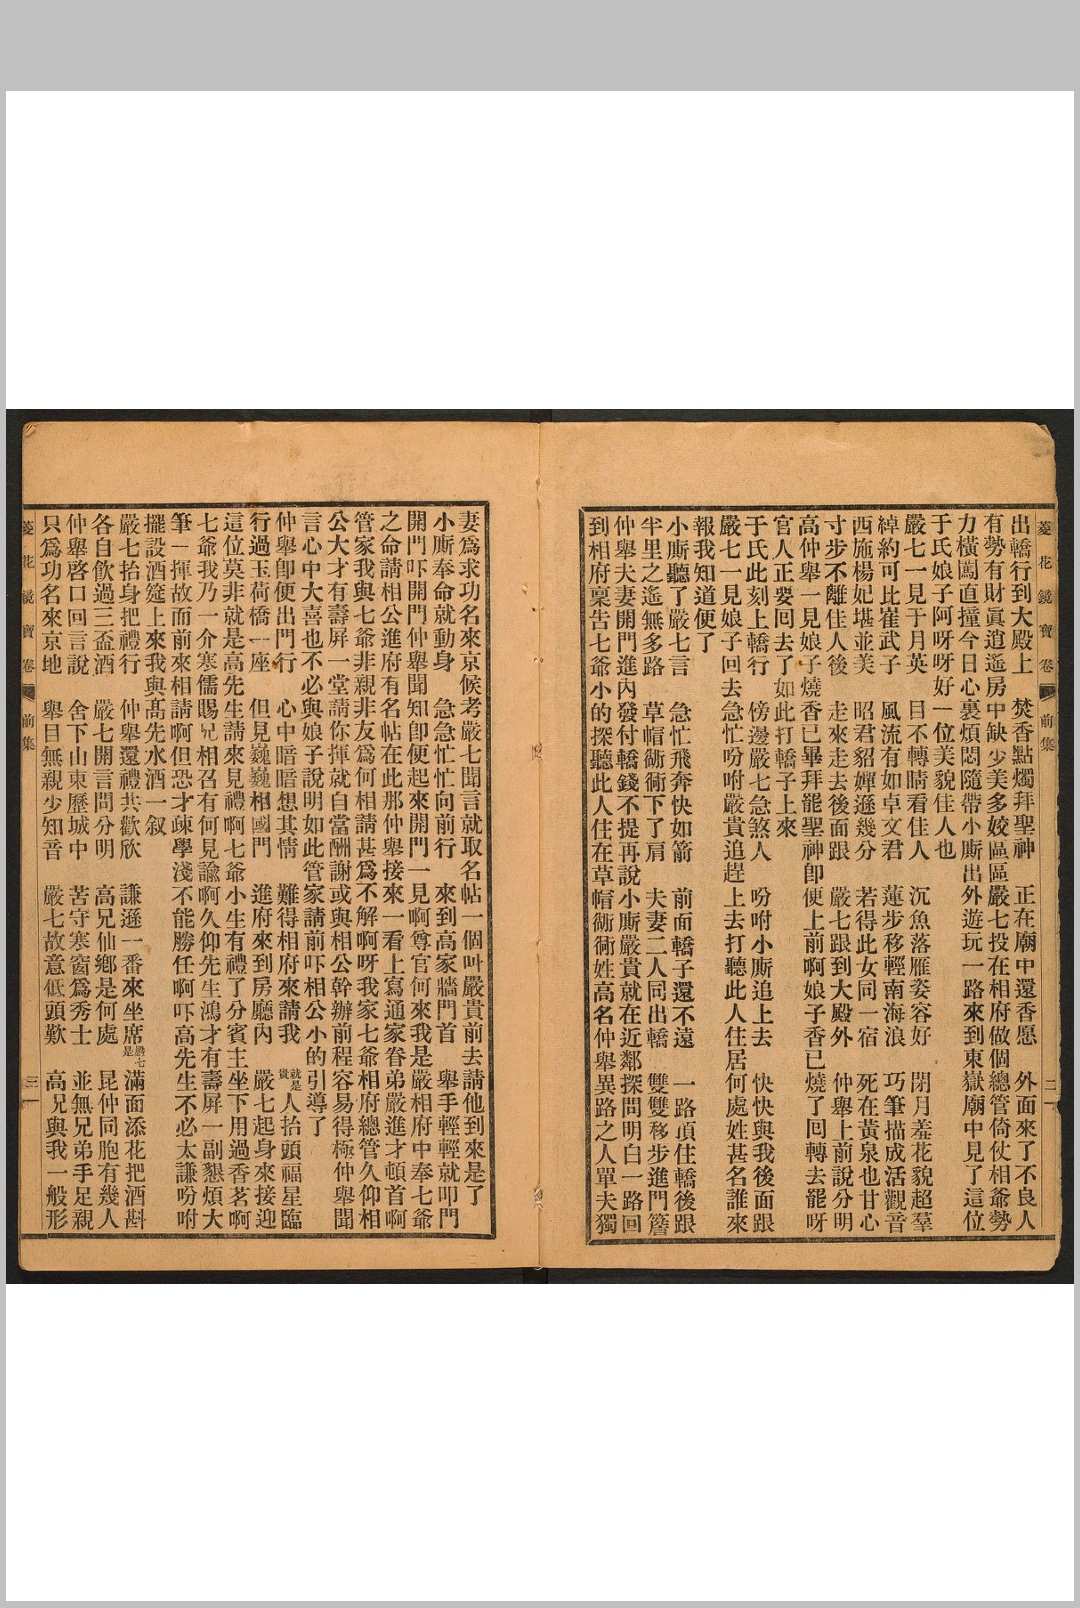 菱花鏡寶卷 前集 二
出轎行到大殿上 焚香點燭拜聖神 正在廟中還香愿 外面來了不良人
有勢有財眞逍遙房中缺少美多姣區區嚴七投在相府做個總管倚仗相爺勢
力橫闖直撞今日心裏煩悶隨帶小廝出外遊玩一路來到東嶽廟中見了這位
于氏娘子阿呀呀好一位美貌佳人也
嚴七一見于月英 目不轉睛看佳人 沉魚落雁姿容好 閉月羞花貌超羣
綽約可比崔武子 風流有如卓文君 蓮步移輕南海浪 巧筆描成活觀音
西施楊妃堪並美 昭君貂嬋遜幾分 若得此女同一宿 死在黃泉也甘心
寸步不離佳人後 走來走去後面跟 嚴七跟到大殿外 仲舉上前說分明
高仲舉一見娘子燒香已畢拜罷聖神卽便上前啊娘子香已燒了回轉去罷呀
官人正要回去了如此打轎子上來
于氏此刻上轎行 傍邊嚴七急煞人 吩咐小廝追上去 快快與我後面跟
嚴七一見娘子回去急忙吩咐嚴貴追趕上去打聽此人住居何處姓甚名誰來
報我知道便了
小廝聽了嚴七言 急忙飛奔快如箭 前面轎子還不遠 一路項住轎後跟
半里之遙無多路 草帽衚衕下了肩 夫妻二人同出轎 雙雙移步進門簷
仲舉夫妻開門進內發付轎錢不提再說小廝嚴貴就在近鄰探問明白一路回
到相府稟告七爺小的探聽此人住在草帽衚衕姓高名仲舉異路之人單夫獨
妻爲求功名來京候考嚴七聞言就取名帖一個叫嚴貴前去請他到來是了
小廝奉命就動身 急急忙忙向前行 來到高家牆門首 舉手輕輕就叩門
開門吓開門仲舉聞知卽便起來開門一見啊尊官何來我是嚴相府中奉七爺
之命請相公進府有名帖在此那仲舉接來一看上寫通家眷弟嚴進才頓首啊
管家我與七爺非親非友爲何相請甚爲不解啊呀我家七爺相府總管久仰相
公大才有壽屏一堂請你揮就自當酬謝或與相公幹辦前程容易得極仲舉聞
言心中大喜也不必與娘子說明如此管家請前吓相公小的引導了
仲舉卽便出門行 心中暗暗想其情 難得相府來請我 就是人抬頭福星臨
行過玉荷橋一座 但見巍巍相國門 進府來到房廳內 嚴七起身來接迎
這位莫非就是高先生請來見禮啊七爺小生有禮了分賓主坐下用過香茗啊
七爺我乃一介寒儒賜兄相召有何見諭啊久仰先生鴻才有壽屏一副懇煩大
筆一揮故而前來相請啊但恐才疎學淺不能勝任啊吓高先生不必太謙吩咐
擺設酒筵上來我與高先水酒一叙
嚴七抬身把禮行 仲舉還禮共歡欣 謙遜一番來坐席 嚴七是滿面添花把酒斟
各自飲過三盃酒 嚴七開言問分明 高兄仙鄉是何處 昆仲同胞有幾人
仲舉啓口回言說 舍下山東歷城中 苦守寒窗爲秀士 並無兄弟手足親
只爲功名來京地 舉目無親少知音 嚴七故意低頭歎 高兄與我一般形
菱花鏡寶卷 前集 三